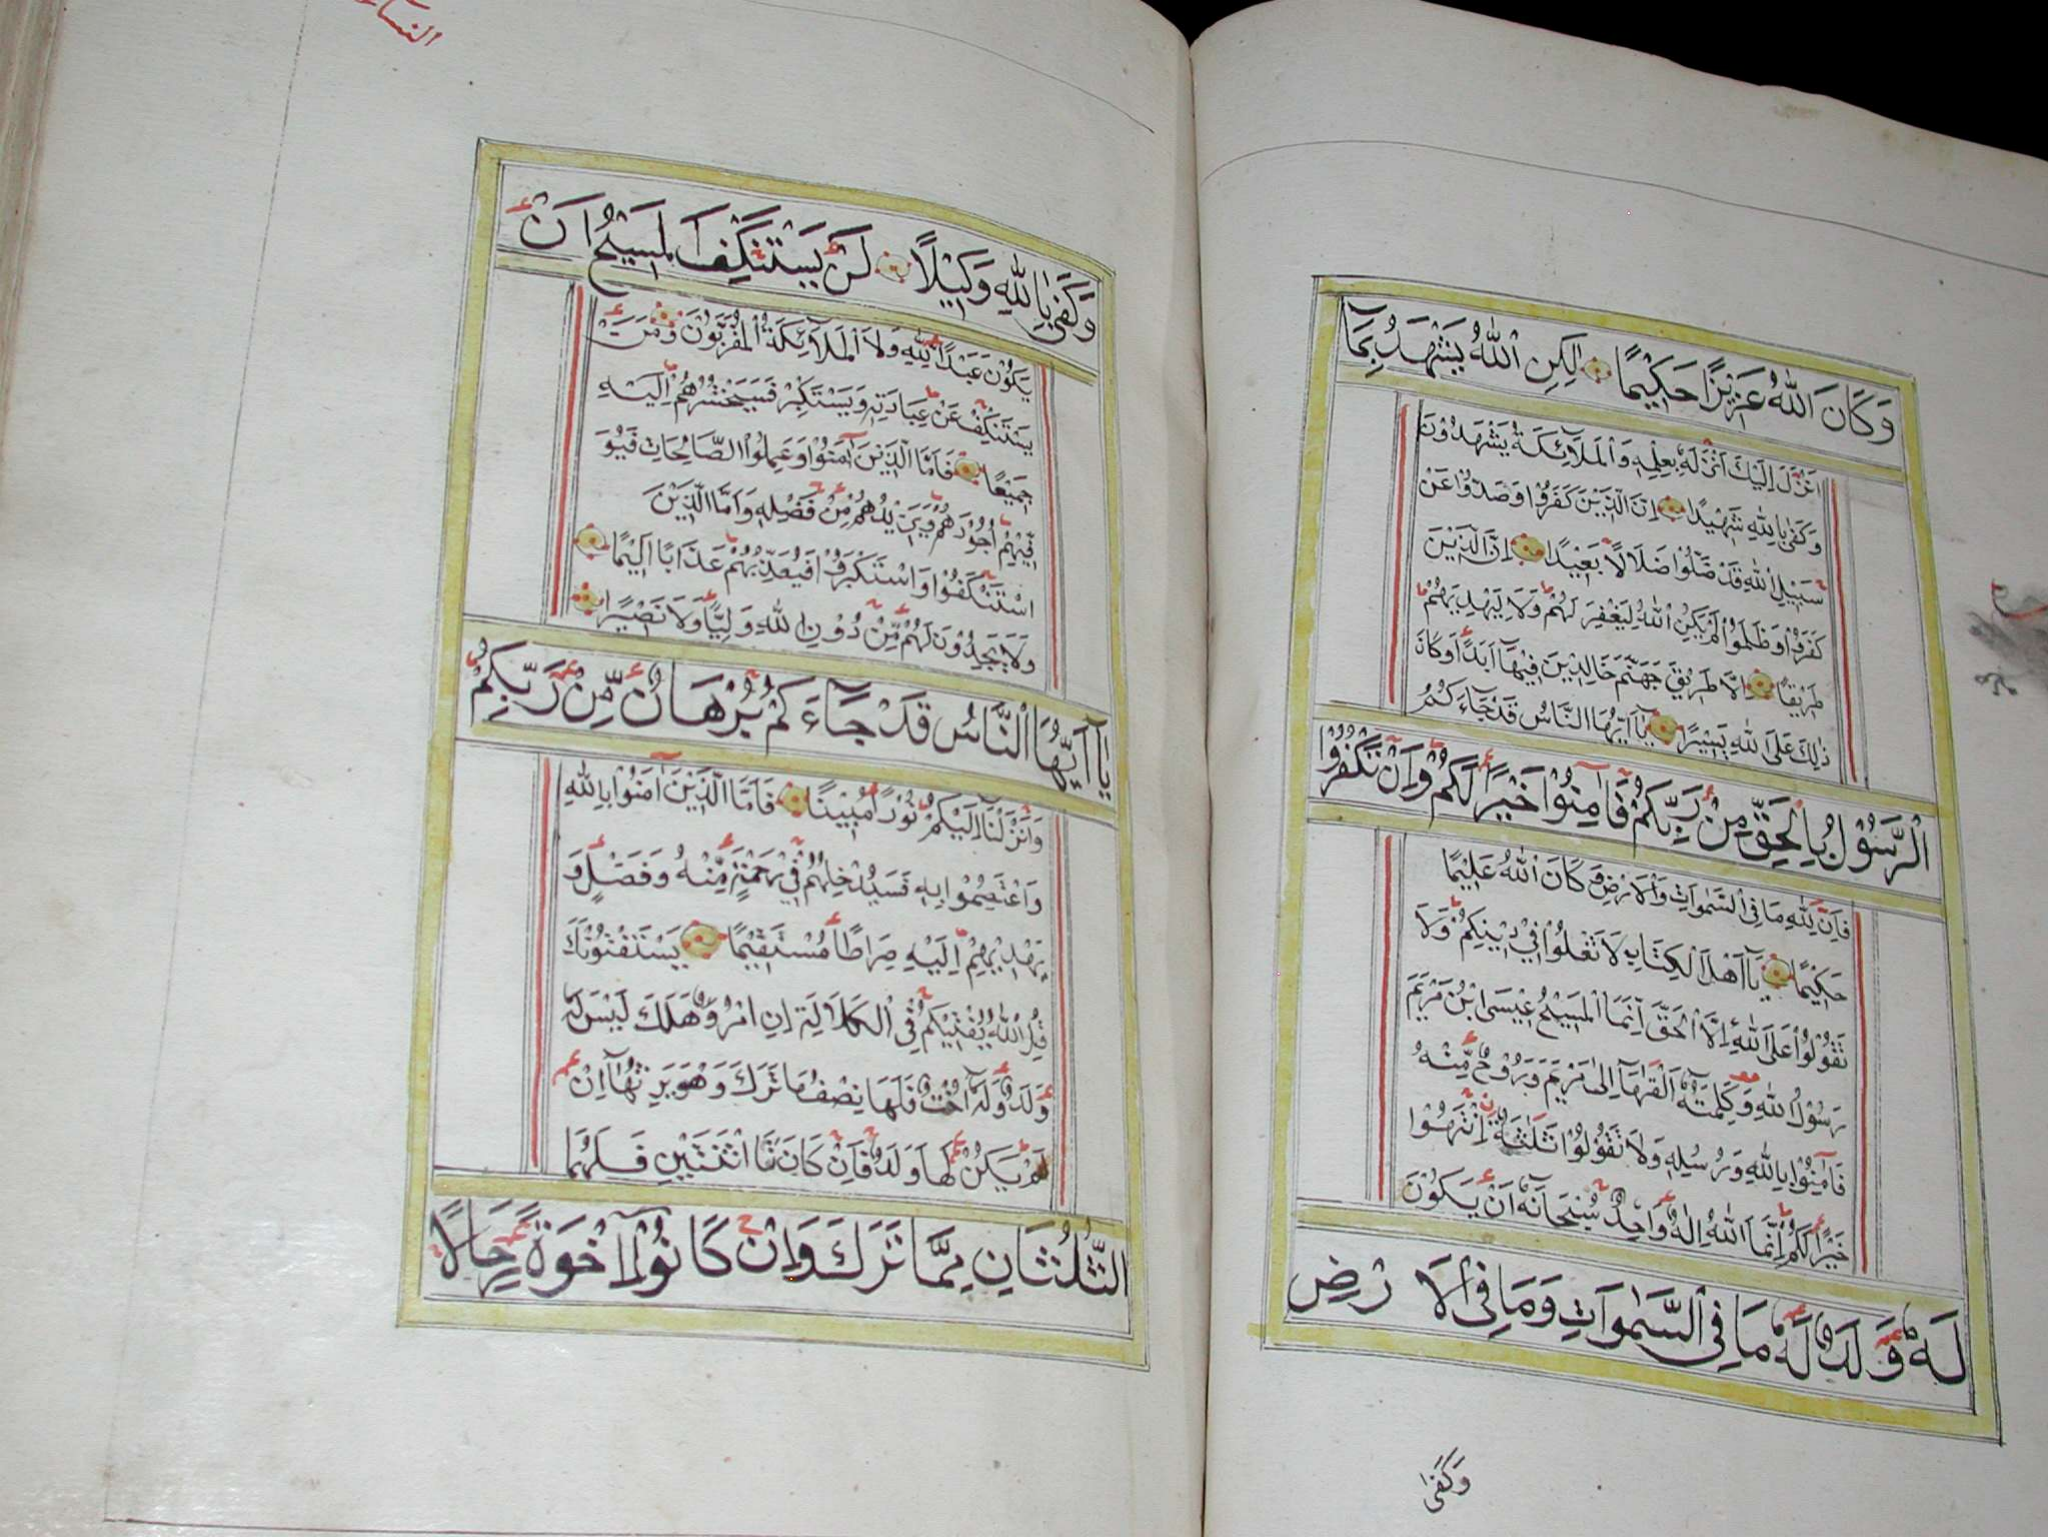 وَكَانَ اللّٰهُ عَزِيْزًا حَكِيْمًا لٰكِنِ اللّٰهُ يَشْهَدُ بِمَآ
اَنْزَلَ اِلَيْكَ اَنْزَلَهٗ بِعِلْمِهٖ وَالْمَلَآئِكَةُ يَشْهَدُوْنَ
وَكَفٰى بِاللّٰهِ شَهِيْدًا اِنَّ الَّذِيْنَ كَفَرُوْا وَصَدُّوْا عَنْ
سَبِيْلِ اللّٰهِ قَدْ ضَلُّوْا ضَلَالًا بَعِيْدًا اِنَّ الَّذِيْنَ
كَفَرُوْا وَظَلَمُوْا لَمْ يَكُنِ اللّٰهُ لِيَغْفِرَ لَهُمْ وَلَا لِيَهْدِيَهُمْ
طَرِيْقًا اِلَّا طَرِيْقَ جَهَنَّمَ خَالِدِيْنَ فِيْهَآ اَبَدًا وَكَانَ
ذٰلِكَ عَلَى اللّٰهِ يَسِيْرًا يَآ اَيُّهَا النَّاسُ قَدْ جَآءَكُمُ
الرَّسُوْلُ بِالْحَقِّ مِنْ رَبِّكُمْ فَاٰمِنُوْا خَيْرًا لَكُمْ وَاِنْ تَكْفُرُوْا
فَاِنَّ لِلّٰهِ مَا فِى السَّمٰوَاتِ وَالْاَرْضِ وَكَانَ اللّٰهُ عَلِيْمًا
حَكِيْمًا يَآ اَهْلَ الْكِتَابِ لَا تَغْلُوْا فِيْ دِيْنِكُمْ وَلَا
تَقُوْلُوْا عَلَى اللّٰهِ اِلَّا الْحَقَّ اِنَّمَا الْمَسِيْحُ عِيْسَى ابْنُ مَرْيَمَ
رَسُوْلُ اللّٰهِ وَكَلِمَتُهٗ اَلْقٰهَآ اِلٰى مَرْيَمَ وَرُوْحٌ مِّنْهُ
فَاٰمِنُوْا بِاللّٰهِ وَرُسُلِهٖ وَلَا تَقُوْلُوْا ثَلٰثَةٌ اِنْتَهُوْا
خَيْرًا لَكُمْ اِنَّمَا اللّٰهُ اِلٰهٌ وَّاحِدٌ سُبْحَانَهٗ اَنْ يَكُوْنَ
لَهٗ وَلَدٌ لَهٗ مَا فِى السَّمٰوَاتِ وَمَا فِى الْاَرْضِ
وَكَفٰى
النساء
وَكَفٰى بِاللّٰهِ وَكِيْلًا لَنْ يَسْتَنْكِفَ الْمَسِيْحُ اَنْ
يَكُوْنَ عَبْدًا لِلّٰهِ وَلَا الْمَلَآئِكَةُ الْمُقَرَّبُوْنَ وَمَنْ
يَسْتَنْكِفْ عَنْ عِبَادَتِهٖ وَيَسْتَكْبِرْ فَسَيَحْشُرُهُمْ اِلَيْهِ
جَمِيْعًا فَاَمَّا الَّذِيْنَ اٰمَنُوْا وَعَمِلُوا الصَّالِحَاتِ فَيُوَ
فِّيْهِمْ اُجُوْرَهُمْ وَيَزِيْدُهُمْ مِنْ فَضْلِهٖ وَاَمَّا الَّذِيْنَ
اسْتَنْكَفُوْا وَاسْتَكْبَرُوْا فَيُعَذِّبُهُمْ عَذَابًا اَلِيْمًا
وَلَا يَجِدُوْنَ لَهُمْ مِّنْ دُوْنِ اللّٰهِ وَلِيًّا وَلَا نَصِيْرًا
يَآ اَيُّهَا النَّاسُ قَدْ جَآءَكُمْ بُرْهَانٌ مِّنْ رَبِّكُمْ
وَاَنْزَلْنَا اِلَيْكُمْ نُوْرًا مُبِيْنًا فَاَمَّا الَّذِيْنَ اٰمَنُوْا بِاللّٰهِ
وَاعْتَصَمُوْا بِهٖ فَسَيُدْخِلُهُمْ فِيْ رَحْمَةٍ مِّنْهُ وَفَضْلٍ وَ
يَهْدِيْهِمْ اِلَيْهِ صِرَاطًا مُسْتَقِيْمًا يَسْتَفْتُوْنَكَ
قُلِ اللّٰهُ يُفْتِيْكُمْ فِى الْكَلَالَةِ اِنِ امْرُؤٌ هَلَكَ لَيْسَ لَهٗ
وَلَدٌ وَّلَهٗ اُخْتٌ فَلَهَا نِصْفُ مَا تَرَكَ وَهُوَ يَرِثُهَآ اِنْ
لَمْ يَكُنْ لَهَا وَلَدٌ فَاِنْ كَانَتَا اثْنَتَيْنِ فَلَهُمَا
الثُّلُثَانِ مِمَّا تَرَكَ وَاِنْ كَانُوْا اِخْوَةً رِجَالًا